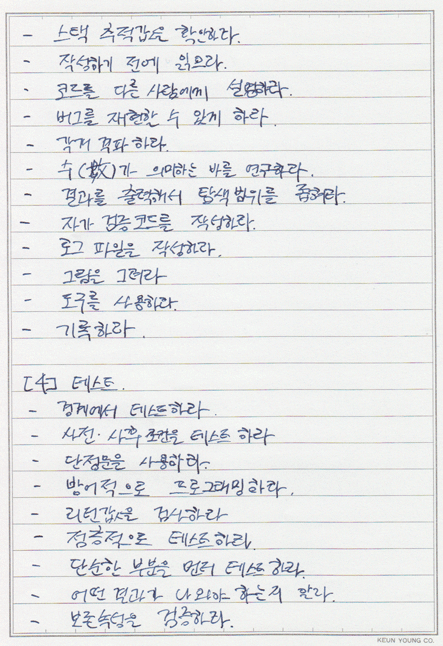 - 스택 추적값을 확인하라.
- 작성하기 전에 읽으라.
- 코드를 다른 사람에게 설명하라.
- 버그를 재현할 수 있게 하라.
- 각개 격파 하라.
- 수(數)가 의미하는 바를 연구하라.
- 결과를 출력해서 탐색범위를 좁혀라.
- 자가 검증코드를 작성하라.
- 로그 파일을 작성하라.
- 그림을 그려라
- 도구를 사용하라.
- 기록하라.
[4] 테스트.
- 경계에서 테스트하라.
- 사전·사후 조건을 테스트 하라
- 단정문을 사용하라.
- 방어적으로 프로그래밍하라.
- 리턴값을 검사하라
- 점층적으로 테스트하라.
- 단순한 부분을 먼저 테스트 하라.
- 어떤 결과가 나와야 하는지 알라.
- 보존속성을 검증하라.
KEUN YOUNG CO.